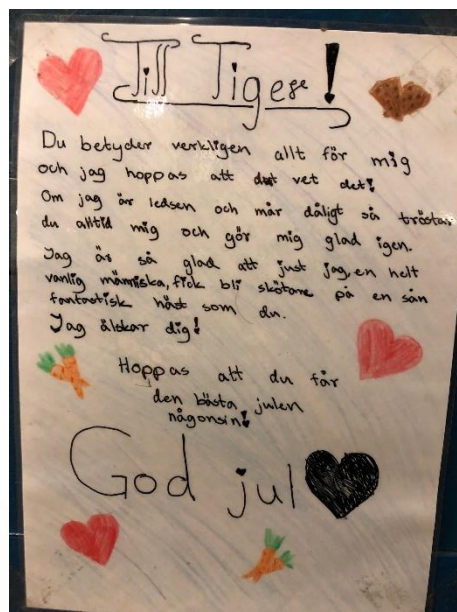 Till Tiger!
Du betyder verkligen allt för mig
och jag hoppas att du vet det!
Om jag är ledsen och mår dåligt så tröstar
du alltid mig och gör mig glad igen.
Jag är så glad att just jag, en helt
vanlig människa, fick bli skötare på en sån
fantastisk häst som du.
Jag älskar dig!
Hoppas att du får
den bästa julen
någonsin!
God jul